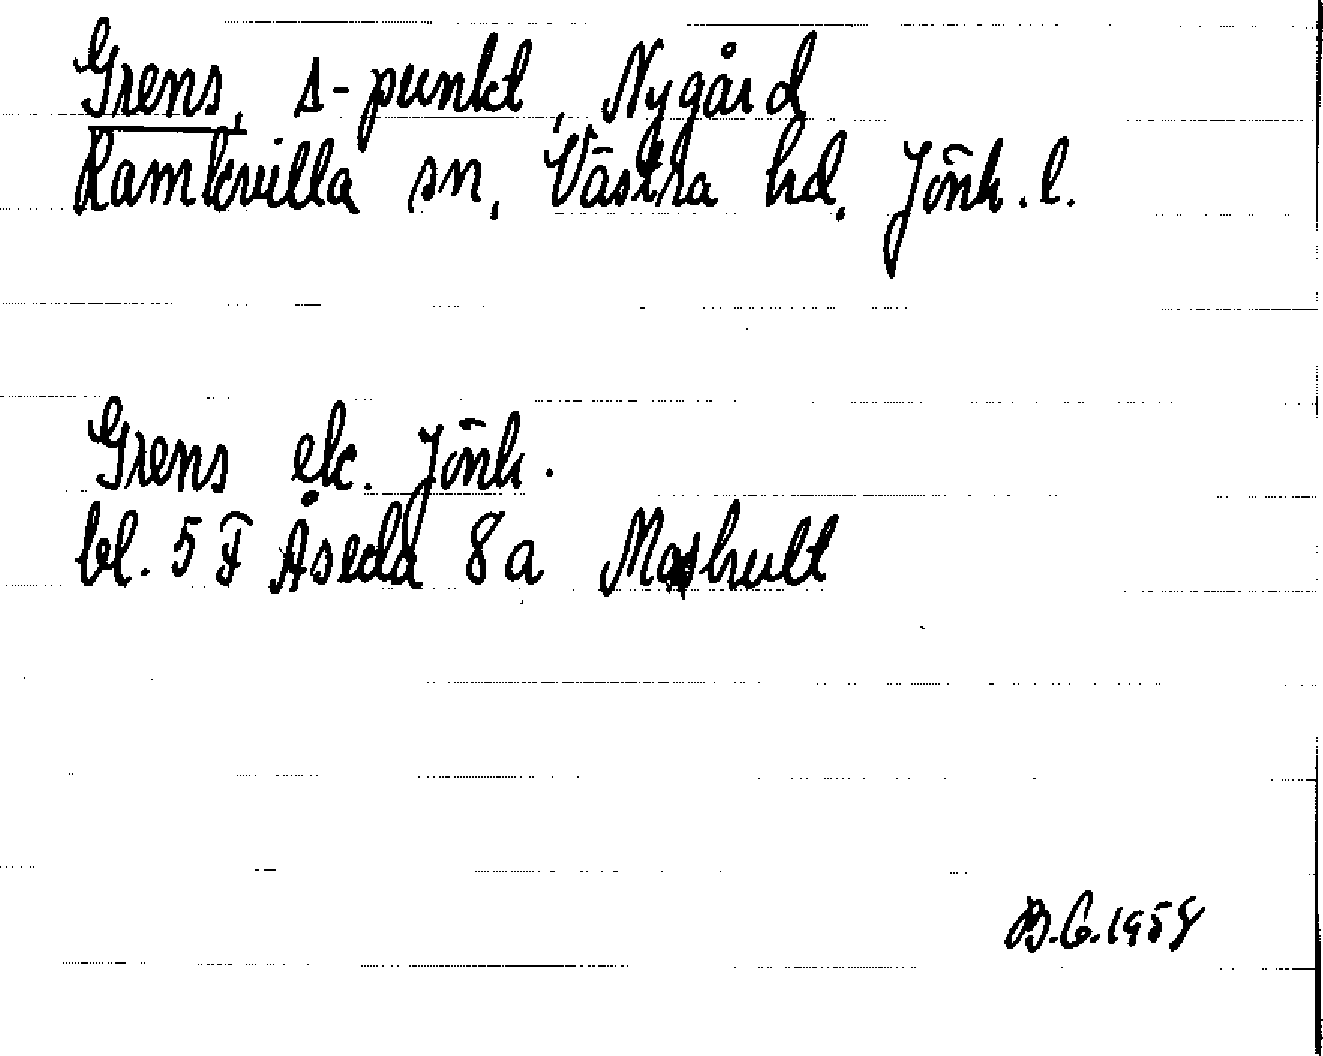 Grens, s-punkt, Nygård
Ramkvilla sn, Västra hd, Jönk. l.
Grens ek. Jönk.
bl. 5 F Åseda 8 a Moshult
B.G. 1958